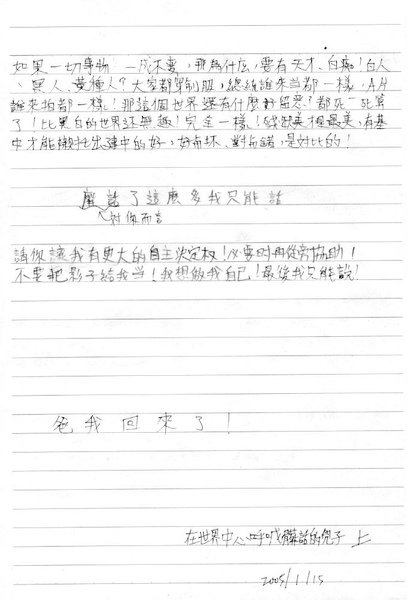 如果一切事物 一成不變，那為什么，要有天才、白痴！白人
、黑人、黃種人？大家都單制服，總統誰來当都一樣，AH
誰來拍都一樣！那這個世界還有什麼好留戀？都死一死算
了！比黑白的世界还無趣！完全一樣！殘缺美才是最美，有基
中才能襯托出建中的好，好有坏、對有錯，是对比的！
廢話了這麼多我只能話
對你而言
請你讓我有更大的自主決定权！必要时再從旁協助！
不要把影子給我当！我想做我自己！最後我只能說！
爸我回來了！
在世界中心呼喊髒話的兒子 上
2005/1/15